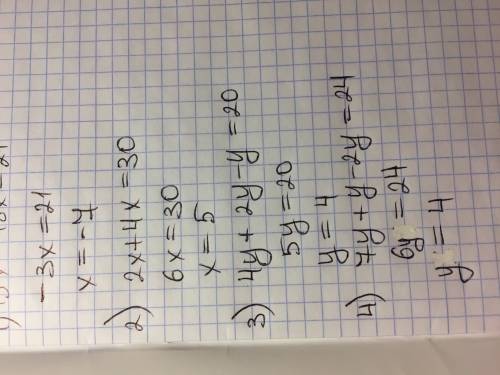 -3x = 21
x = -4
2) 2x + 4x = 30
6x = 30
x = 5
3) 4y + 2y - y = 20
5y = 20
y = 4
4) 7y + y - 2y = 24
6y = 24
y = 4